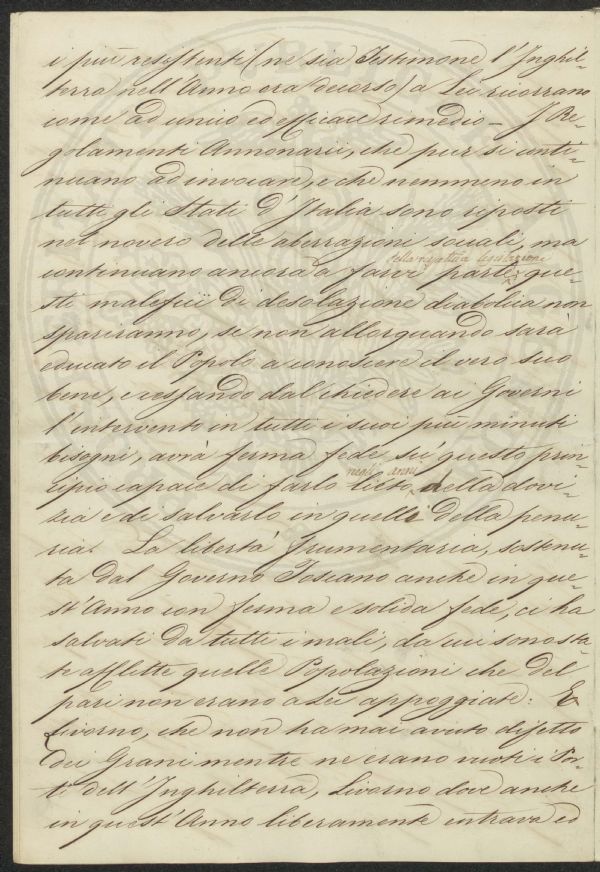 i più resistenti (ne sia Testimone l'Inghil-
terra nell'Anno ora decorso) a Lei ricorrano
come ad unico ed efficace rimedio – I Re-
golamenti Annonarii, che pur si conti-
nuano ad invocare, e che nemmeno in
tutti gli Stati d'Italia sono riposti
nel novero delle aberrazione sociali, ma
della rispettiva legislazione
continuano ancora a farvi parte, que-
sti malefici di desolazione diabolica non
spariranno, se non allorquando sarà
educato il Popolo a conoscere il vero suo
bene, e cessando dal chiedere ai Governi
l'intervento in tutti i suoi più minuti
bisogni, avrà ferma fede su questo prin-
negli anni
cipio capace di farlo lieto, della dovi-
zia e di salvarlo in quelli della penu-
ria. La libertà frumentaria, sostenu-
ta dal Governo Toscano anche in que-
st'Anno con ferma e solida fede, ci ha
salvati da tutti i mali, da cui sono sta-
te afflitte quelle Popolazioni che del
pari non erano a Lei appoggiate: E
Livorno, che non ha mai avuto difetto
dei Grani mentre ne erano vuoti i Por-
ti dell'Inghilterra, Livorno dove anche
in quest'Anno liberamente entrava ed